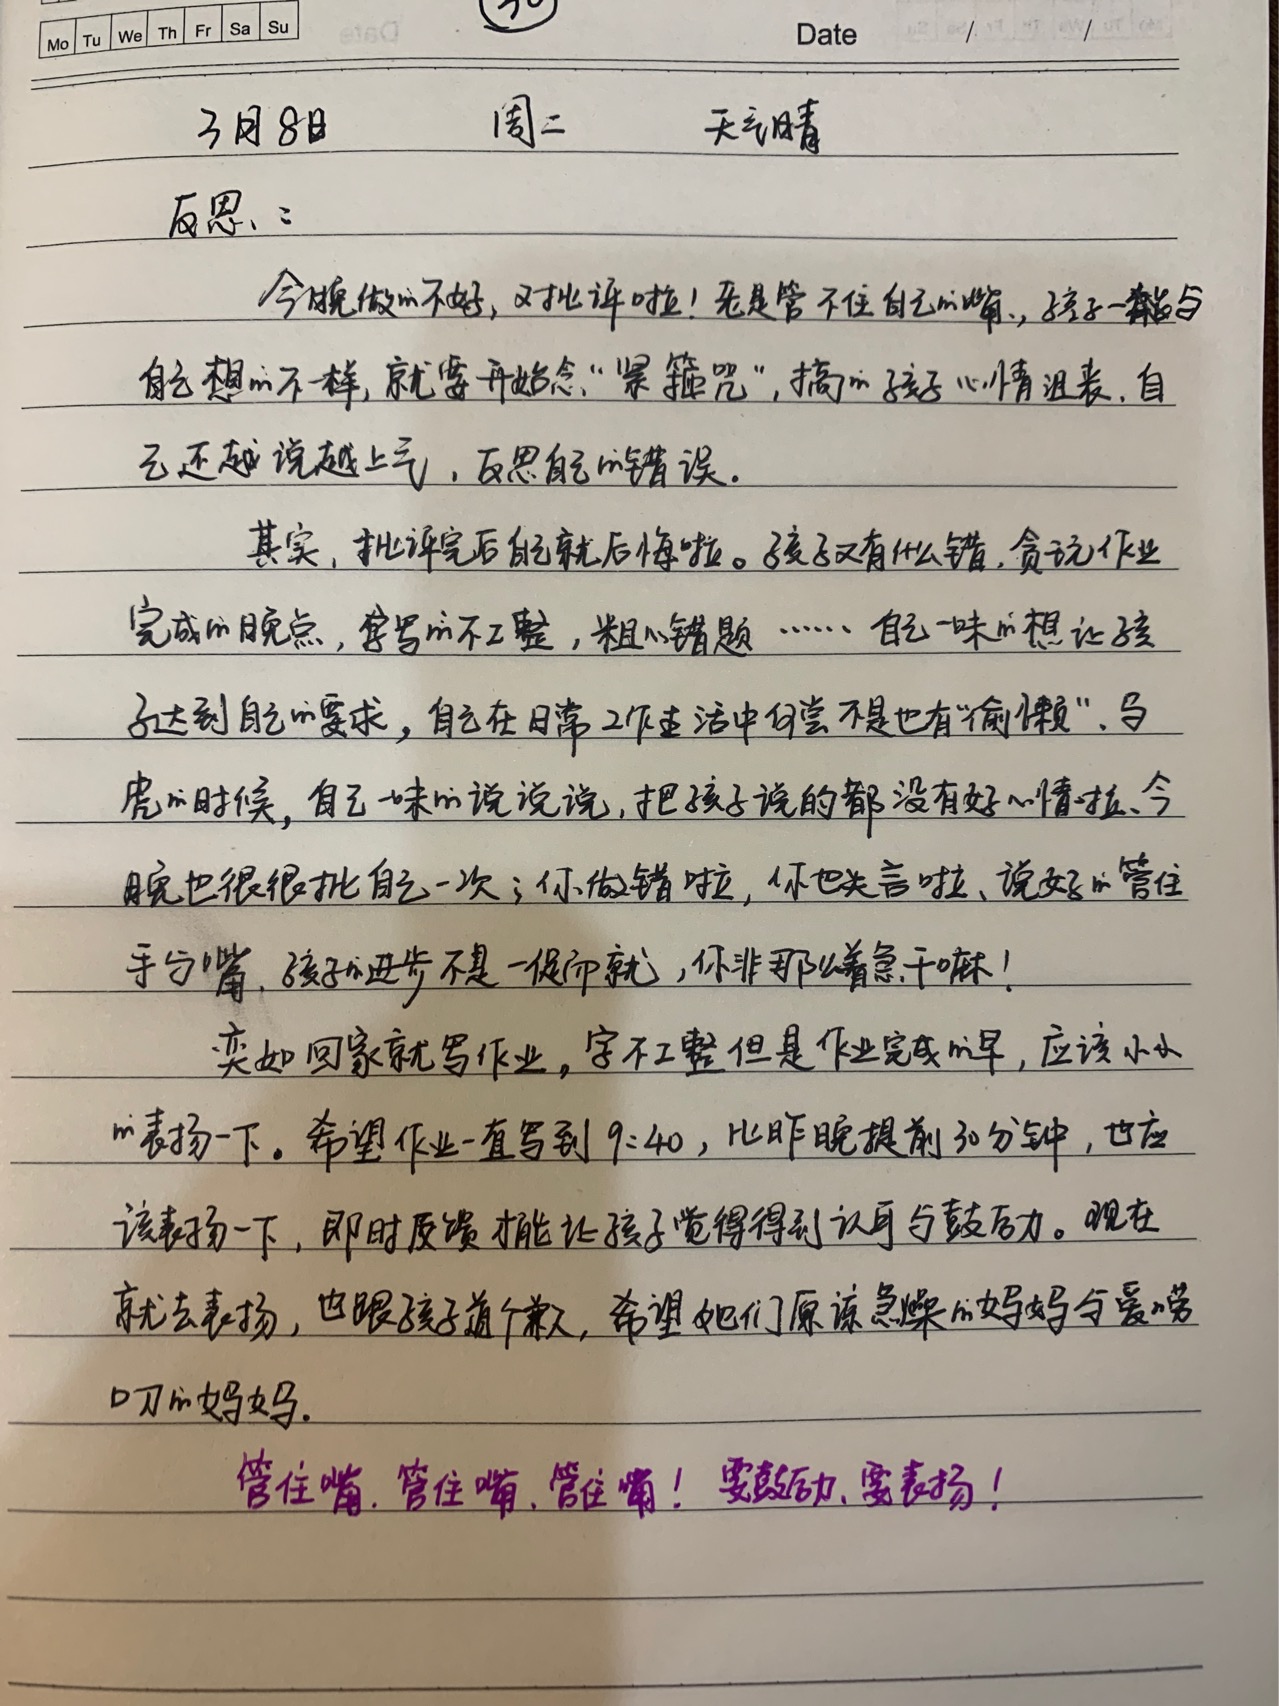 Mo Tu We Th Fr Sa Su
Date / /
3月8日 周二 天气晴
反思：
今晚做的不好，又批评啦！老是管不住自己的嘴，孩子一与
自己想的不一样，就要开始念“紧箍咒”，搞的孩子心情沮丧，自
己还越说越上气，反思自己的错误。
其实，批评完后自己就后悔啦。孩子又有什么错，贪玩作业
完成的晚点，字写的不工整，粗心错题……自己一味的想让孩
子达到自己的要求，自己在日常工作生活中何尝不是也有“偷懒”、马
虎的时候，自己一味的说说说，把孩子说的都没有好心情啦、今
晚也很很批自己一次；你做错啦，你也失言啦、说好的管住
手与嘴，孩子的进步不是一促而就，你非那么着急干嘛！
奕如回家就写作业，字不工整但是作业完成的早，应该小小
的表扬一下。希望作业一直写到9:40，比昨晚提前30分钟，也应
该表扬一下，即时反馈才能让孩子觉得得到认可与鼓励。现在
就去表扬，也跟孩子道个歉，希望她们原谅急燥的妈妈与爱唠
叨的妈妈.
管住嘴、管住嘴、管住嘴！要鼓励、要表扬！